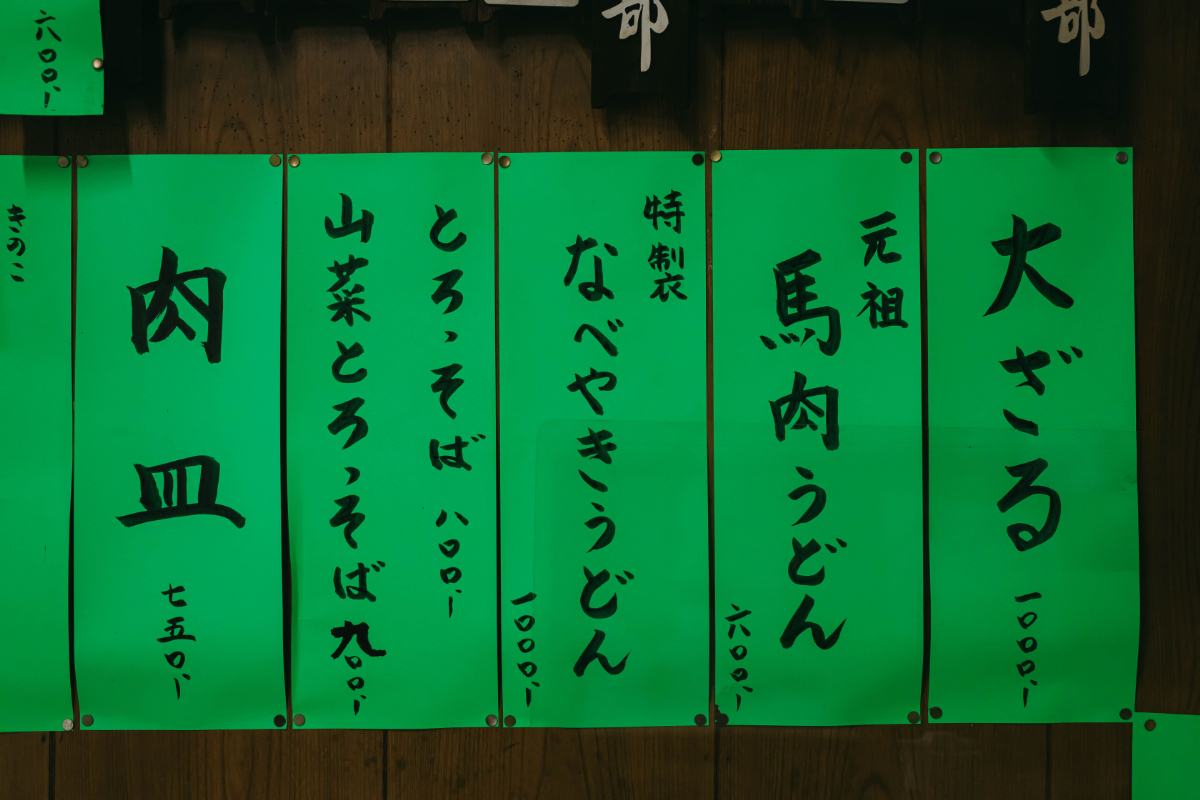 部
部
大ざる
一〇〇〇、
元祖
馬肉うどん
六〇〇、
特製
なべやきうどん
一〇〇〇、
とろゝそば 八〇〇、
山菜とろゝそば 九〇〇、
肉皿
七五〇、
きのこ
六〇〇、